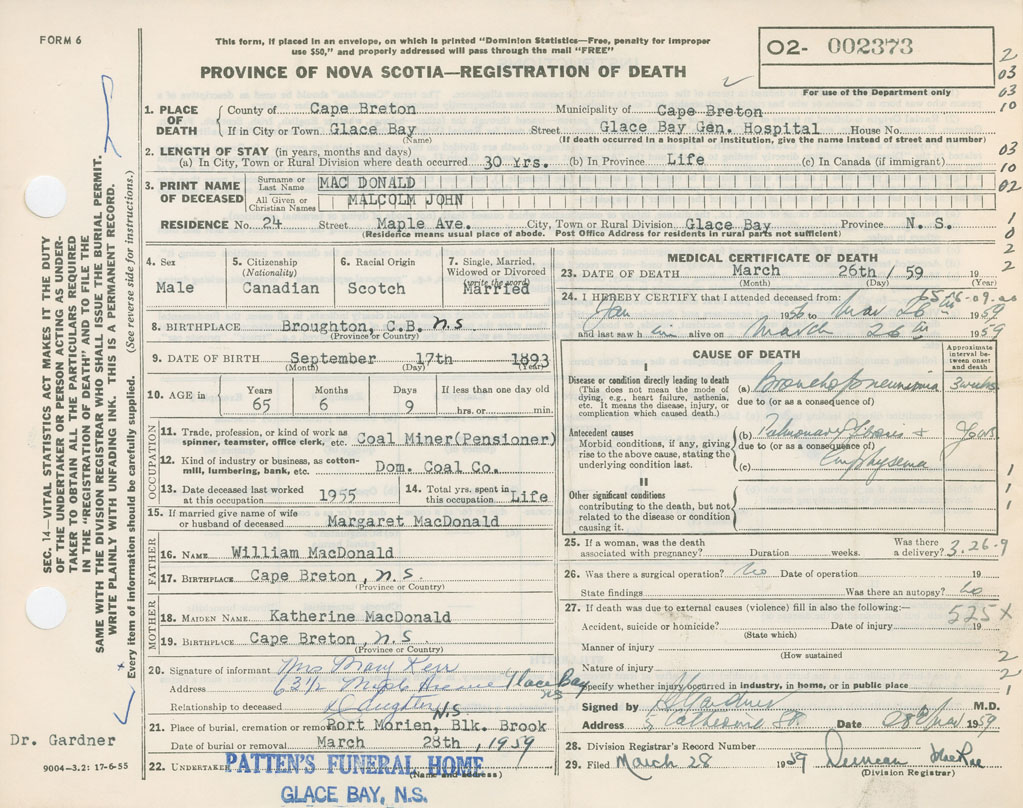 FORM 6
This form, if placed in an envelope, on which is printed "Dominion Statistics—Free, penalty for improper
use $50," and properly addressed will pass through the mail "FREE"
PROVINCE OF NOVA SCOTIA—REGISTRATION OF DEATH
02- 002373
For use of the Department only
2
03
03
10
03
10
02
1
0
2
2
1. PLACE OF DEATH
County of Cape Breton Municipality of Cape Breton
If in City or Town Glace Bay Street Glace Bay Gen. Hospital House No.
(Name) (If death occurred in a hospital or institution, give the name instead of street and number)
2. LENGTH OF STAY (in years, months and days)
(a) In City, Town or Rural Division where death occurred 30 Yrs. (b) In Province Life (c) In Canada (if immigrant)
3. PRINT NAME OF DECEASED
Surname or Last Name MAC DONALD
All Given or Christian Names MALCOLM JOHN
RESIDENCE No. 24 Street Maple Ave. City, Town or Rural Division Glace Bay Province N. S.
(Residence means usual place of abode. Post Office Address for residents in rural parts not sufficient)
4. Sex
Male
5. Citizenship
(Nationality)
Canadian
6. Racial Origin
Scotch
7. Single, Married,
Widowed or Divorced
(write the word)
Married
8. BIRTHPLACE Broughton, C.B. N.S
(Province or Country)
9. DATE OF BIRTH September 17th 1893
(Month) (Day) (Year)
10. AGE in
Years 65
Months 6
Days 9
If less than one day old
hrs. or min.
OCCUPATION
11. Trade, profession, or kind of work as
spinner, teamster, office clerk, etc. Coal Miner(Pensioner)
12. Kind of industry or business, as cotton-
mill, lumbering, bank, etc. Dom. Coal Co.
13. Date deceased last worked
at this occupation 1955
14. Total yrs. spent in
this occupation Life
15. If married give name of wife
or husband of deceased Margaret MacDonald
FATHER
16. NAME William MacDonald
17. BIRTHPLACE Cape Breton, N.S.
(Province or Country)
MOTHER
18. MAIDEN NAME Katherine MacDonald
19. BIRTHPLACE Cape Breton, N.S
(Province or Country)
20. Signature of informant Mrs Mary Kerr
Address 63½ Maple Avenue Glace Bay
NS
Relationship to deceased Daughter
21. Place of burial, cremation or removal Port Morien, Blk. Brook N.S
Date of burial or removal March 28th, 1959
22. UNDERTAKER PATTEN'S FUNERAL HOME
(Name and address)
GLACE BAY, N.S.
MEDICAL CERTIFICATE OF DEATH
23. DATE OF DEATH March 26th / 59 19
(Month) (Day) (Year)
24. I HEREBY CERTIFY that I attended deceased from:
Jan 1956 to Mar 26th 1959
and last saw him alive on March 26th 1959
CAUSE OF DEATH
Approximate
interval be-
tween onset
and death
I
Disease or condition directly leading to death
(This does not mean the mode of
dying, e.g., heart failure, asthenia,
etc. It means the disease, injury, or
complication which caused death.)
(a) Bronchopneumonia 3 weeks
due to (or as a consequence of)
Antecedent causes
Morbid conditions, if any, giving
rise to the above cause, stating the
underlying condition last.
(b) Pulmonary fibrosis + Years
due to (or as a consequence of)
(c) Emphysema
II
Other significant conditions
contributing to the death, but not
related to the disease or condition
causing it.
1
1
1
25. If a woman, was the death
associated with pregnancy? Duration weeks. Was there
a delivery? 3.26.9
26. Was there a surgical operation? No Date of operation 19
State findings Was there an autopsy? No
27. If death was due to external causes (violence) fill in also the following:—
525X
Accident, suicide or homicide? Date of injury 19
(State which)
Manner of injury
(How sustained
Nature of injury
Specify whether injury occurred in industry, in home, or in public place
2
2
1
Signed by Gardner M.D.
Address Catherine St. Date 28 Mar 1959
28. Division Registrar's Record Number
29. Filed March 28 1959 Duncan MacRae
(Division Registrar)
SEC. 14—VITAL STATISTICS ACT MAKES IT THE DUTY
OF THE UNDERTAKER OR PERSON ACTING AS UNDER-
TAKER TO OBTAIN ALL THE PARTICULARS REQUIRED
IN THE "REGISTRATION OF DEATH" AND TO FILE THE
SAME WITH THE DIVISION REGISTRAR WHO SHALL ISSUE THE BURIAL PERMIT.
WRITE PLAINLY WITH UNFADING INK. THIS IS A PERMANENT RECORD.
Every item of information should be carefully supplied. (See reverse side for instructions.)
Dr. Gardner
9004-3.2: 17-6-55